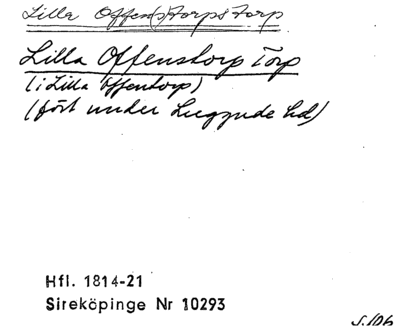 Lilla Offen(s)torps Torp
Lilla Offenstorp Torp
(i Lilla Offentorp)
(fört under Luggude hd)
Hfl. 1814-21
Sireköpinge Nr 10293
S. 106